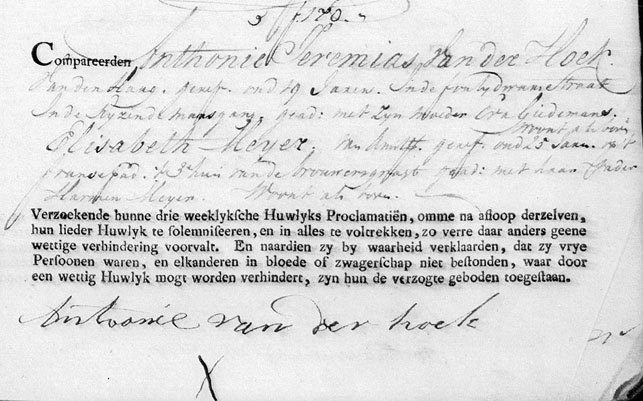 Compareerden Anthonie Jeremias van der Hoek.
van den Haag. geref. oud 29 Jaaren. In de
In de gang, gead: met zyn moeder Eva
Woont als voor.
Elisabeth Meyer, van geref. oud 25 Jaar. op't
't 3e huis van de brouwersgragt gead: met haar Vader
Harmen Meyer. Woont als voor.
Verzoekende hunne drie weeklykſche Huwlyks Proclamatiën, omme na afloop derzelven,
hun lieder Huwlyk te ſolemniſeeren, en in alles te voltrekken, zo verre daar anders geene
wettige verhindering voorvalt. En naardien zy by waarheid verklaarden, dat zy vrye
Perſoonen waren, en elkanderen in bloede of zwagerſchap niet beſtonden, waar door
een wettig Huwlyk mogt worden verhindert, zyn hun de verzogte geboden toegeſtaan.
Antoonie van der hoek
X